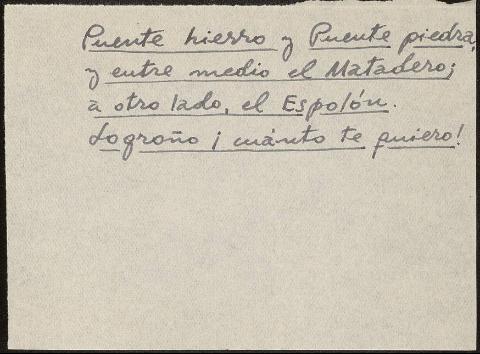 Puente hierro y Puente piedra,
y entre medio el Matadero;
a otro lado, el Espolón.
Logroño ¡ cuánto te quiero!